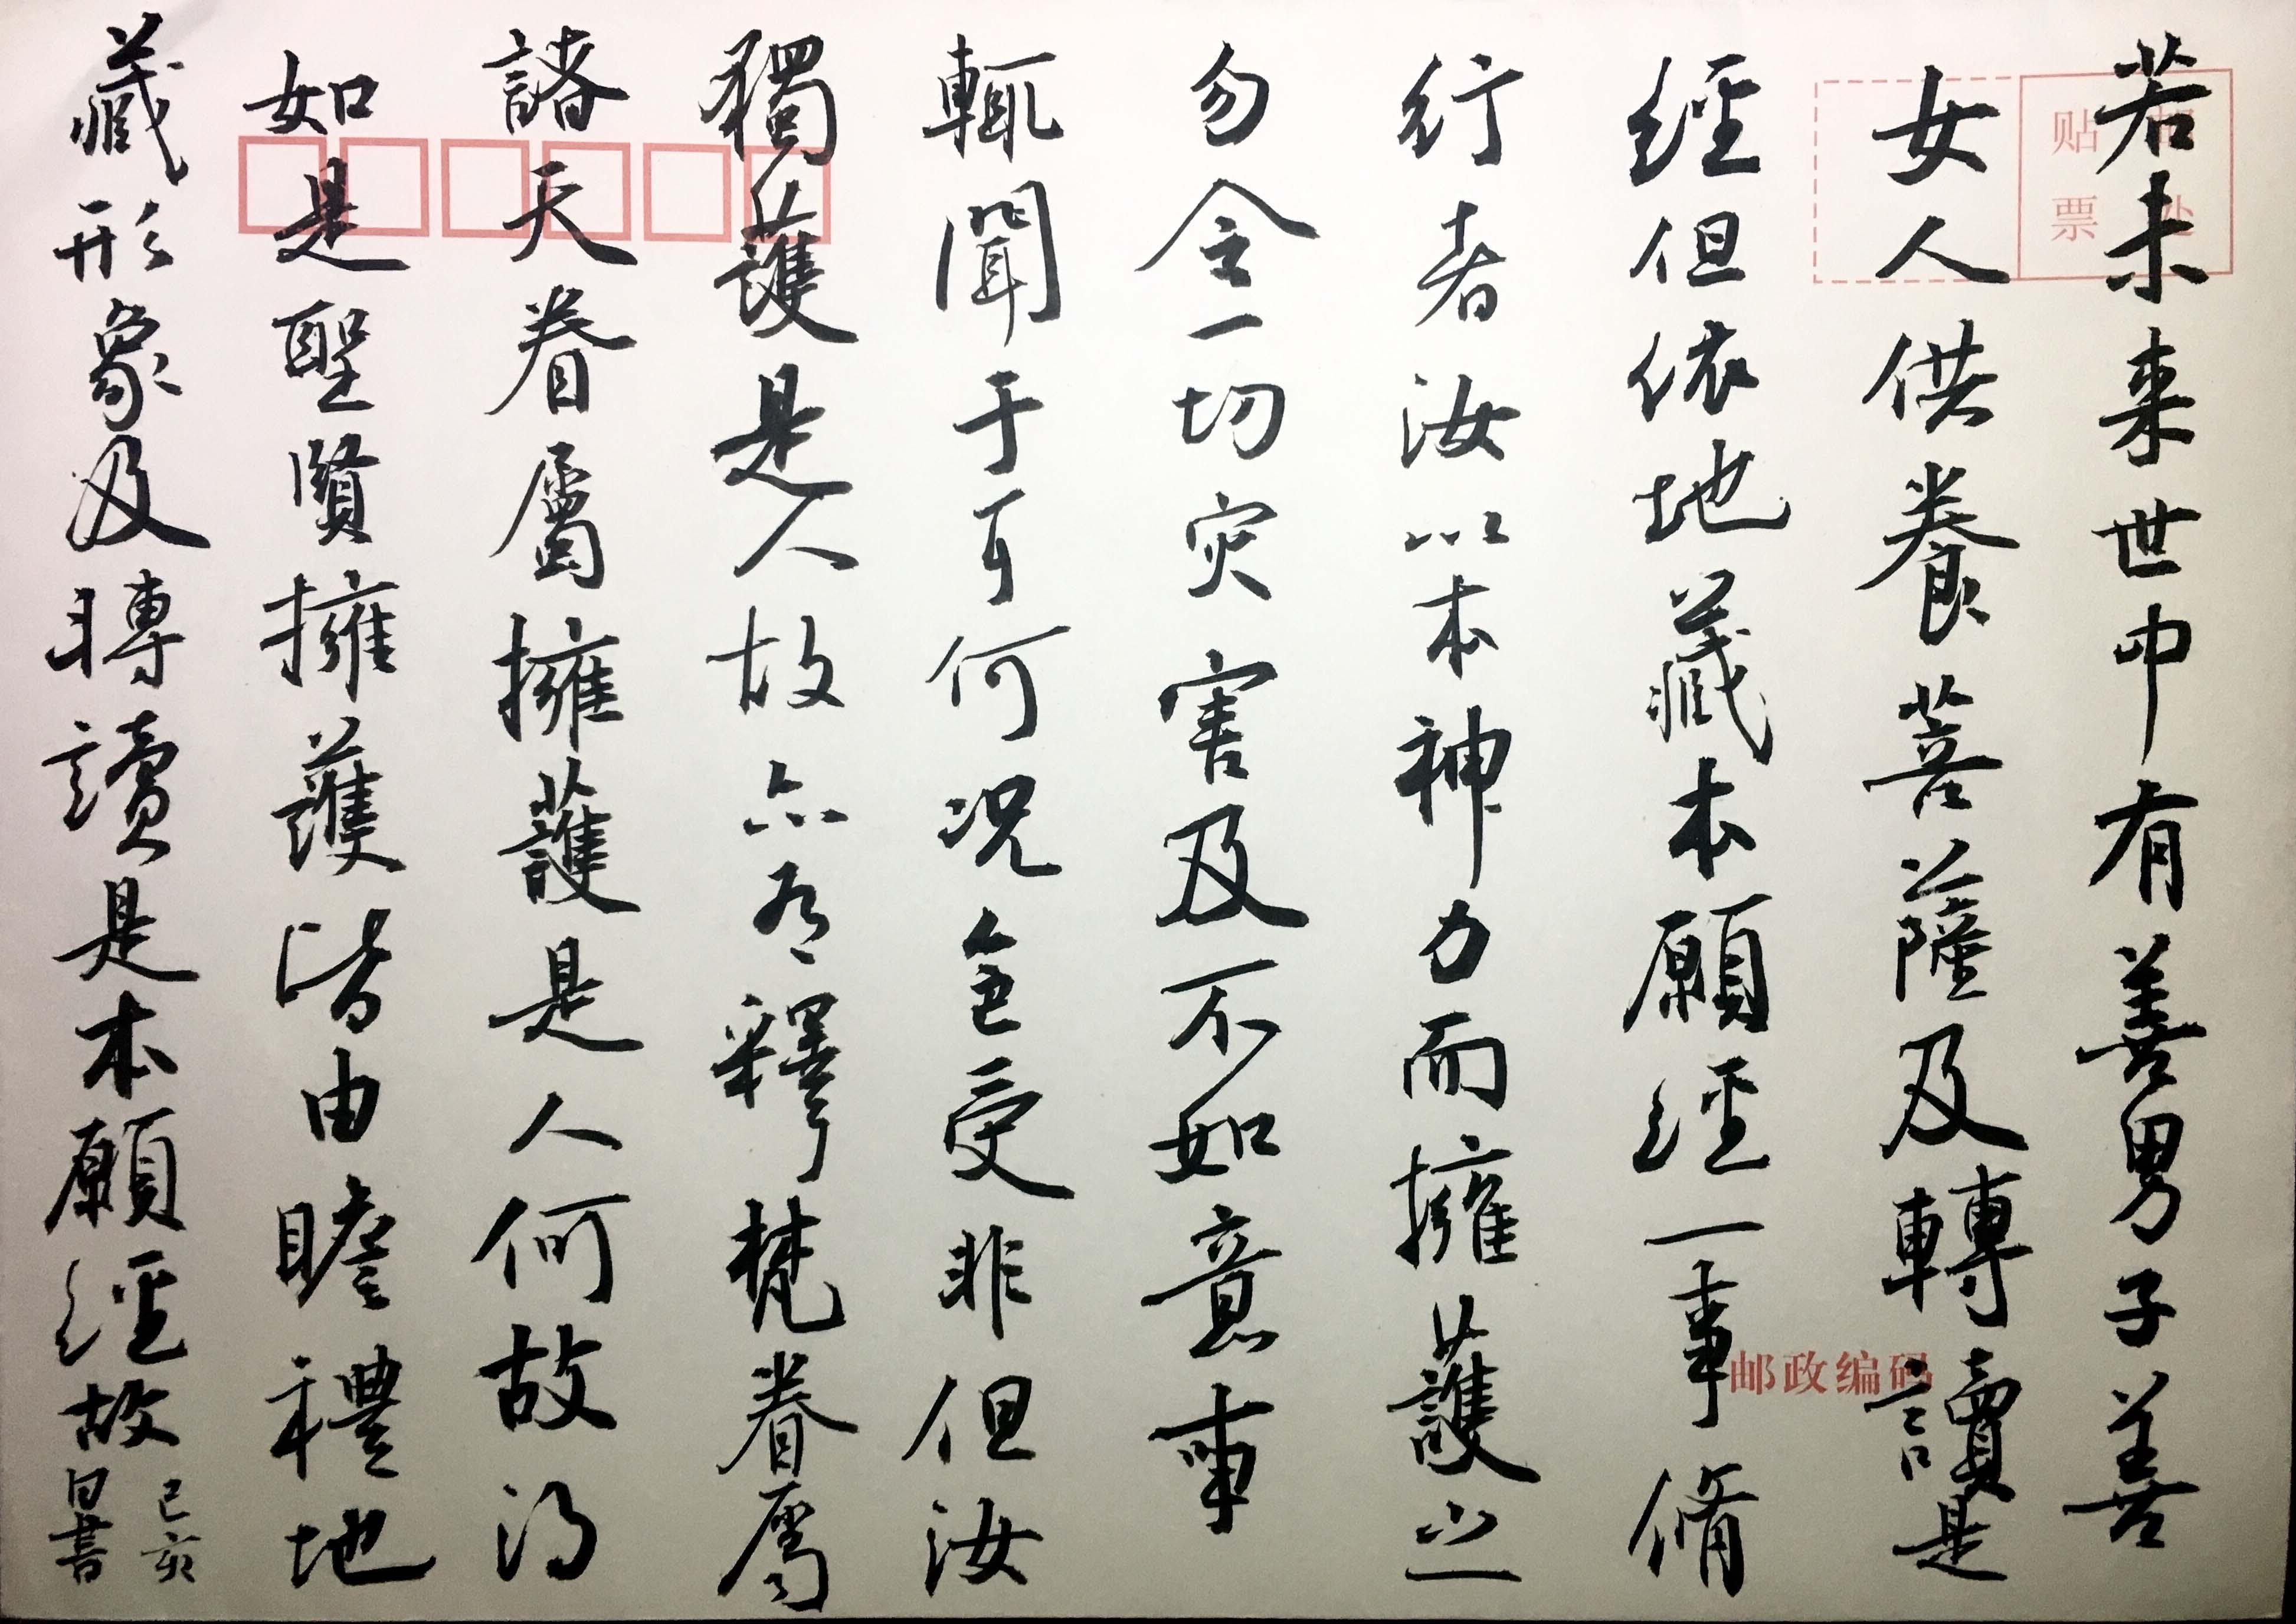 若未来世中有善男子善
女人供養菩薩及轉讀是
經但依地藏本願經一事脩
行者汝以本神力而擁護之
勿令一切灾害及不如意事
輒聞于耳何况令受非但汝
獨護是人故亦有釋梵眷屬
諸天眷屬擁護是人何故得
如是聖賢擁護皆由瞻禮地
藏形象及轉讀是本願經故
己亥
日書
贴
票 处
邮政编码